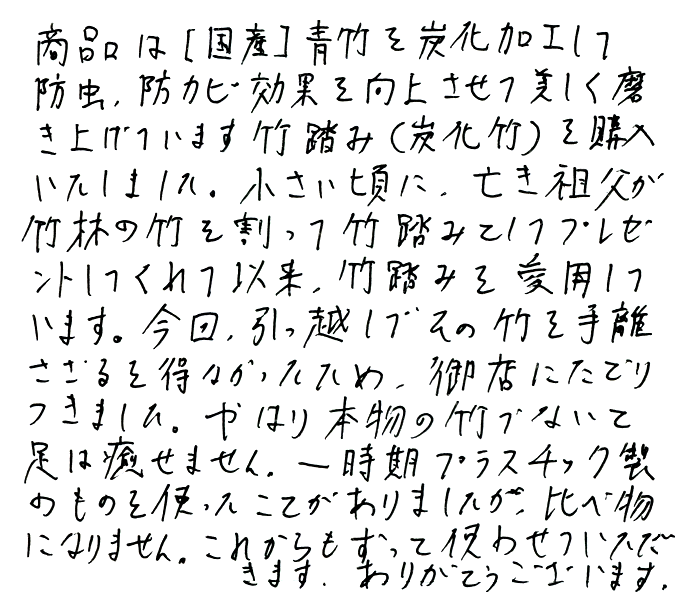 商品は［国産］青竹を炭化加工して
防虫、防カビ効果を向上させて美しく磨
き上げています竹踏み（炭化竹）を購入
いたしました。小さい頃に、亡き祖父が
竹林の竹を割って竹踏みとしてプレゼ
ントしてくれて以来、竹踏みを愛用して
います。今回、引っ越しでその竹を手離
さざるを得なかったため、御店にたどり
つきました。やはり本物の竹でないと
足は癒せません。一時期プラスチック製
のものを使ったことがありましたが、比べ物
になりません。これからもずっと使わせていただ
きます。ありがとうございます。